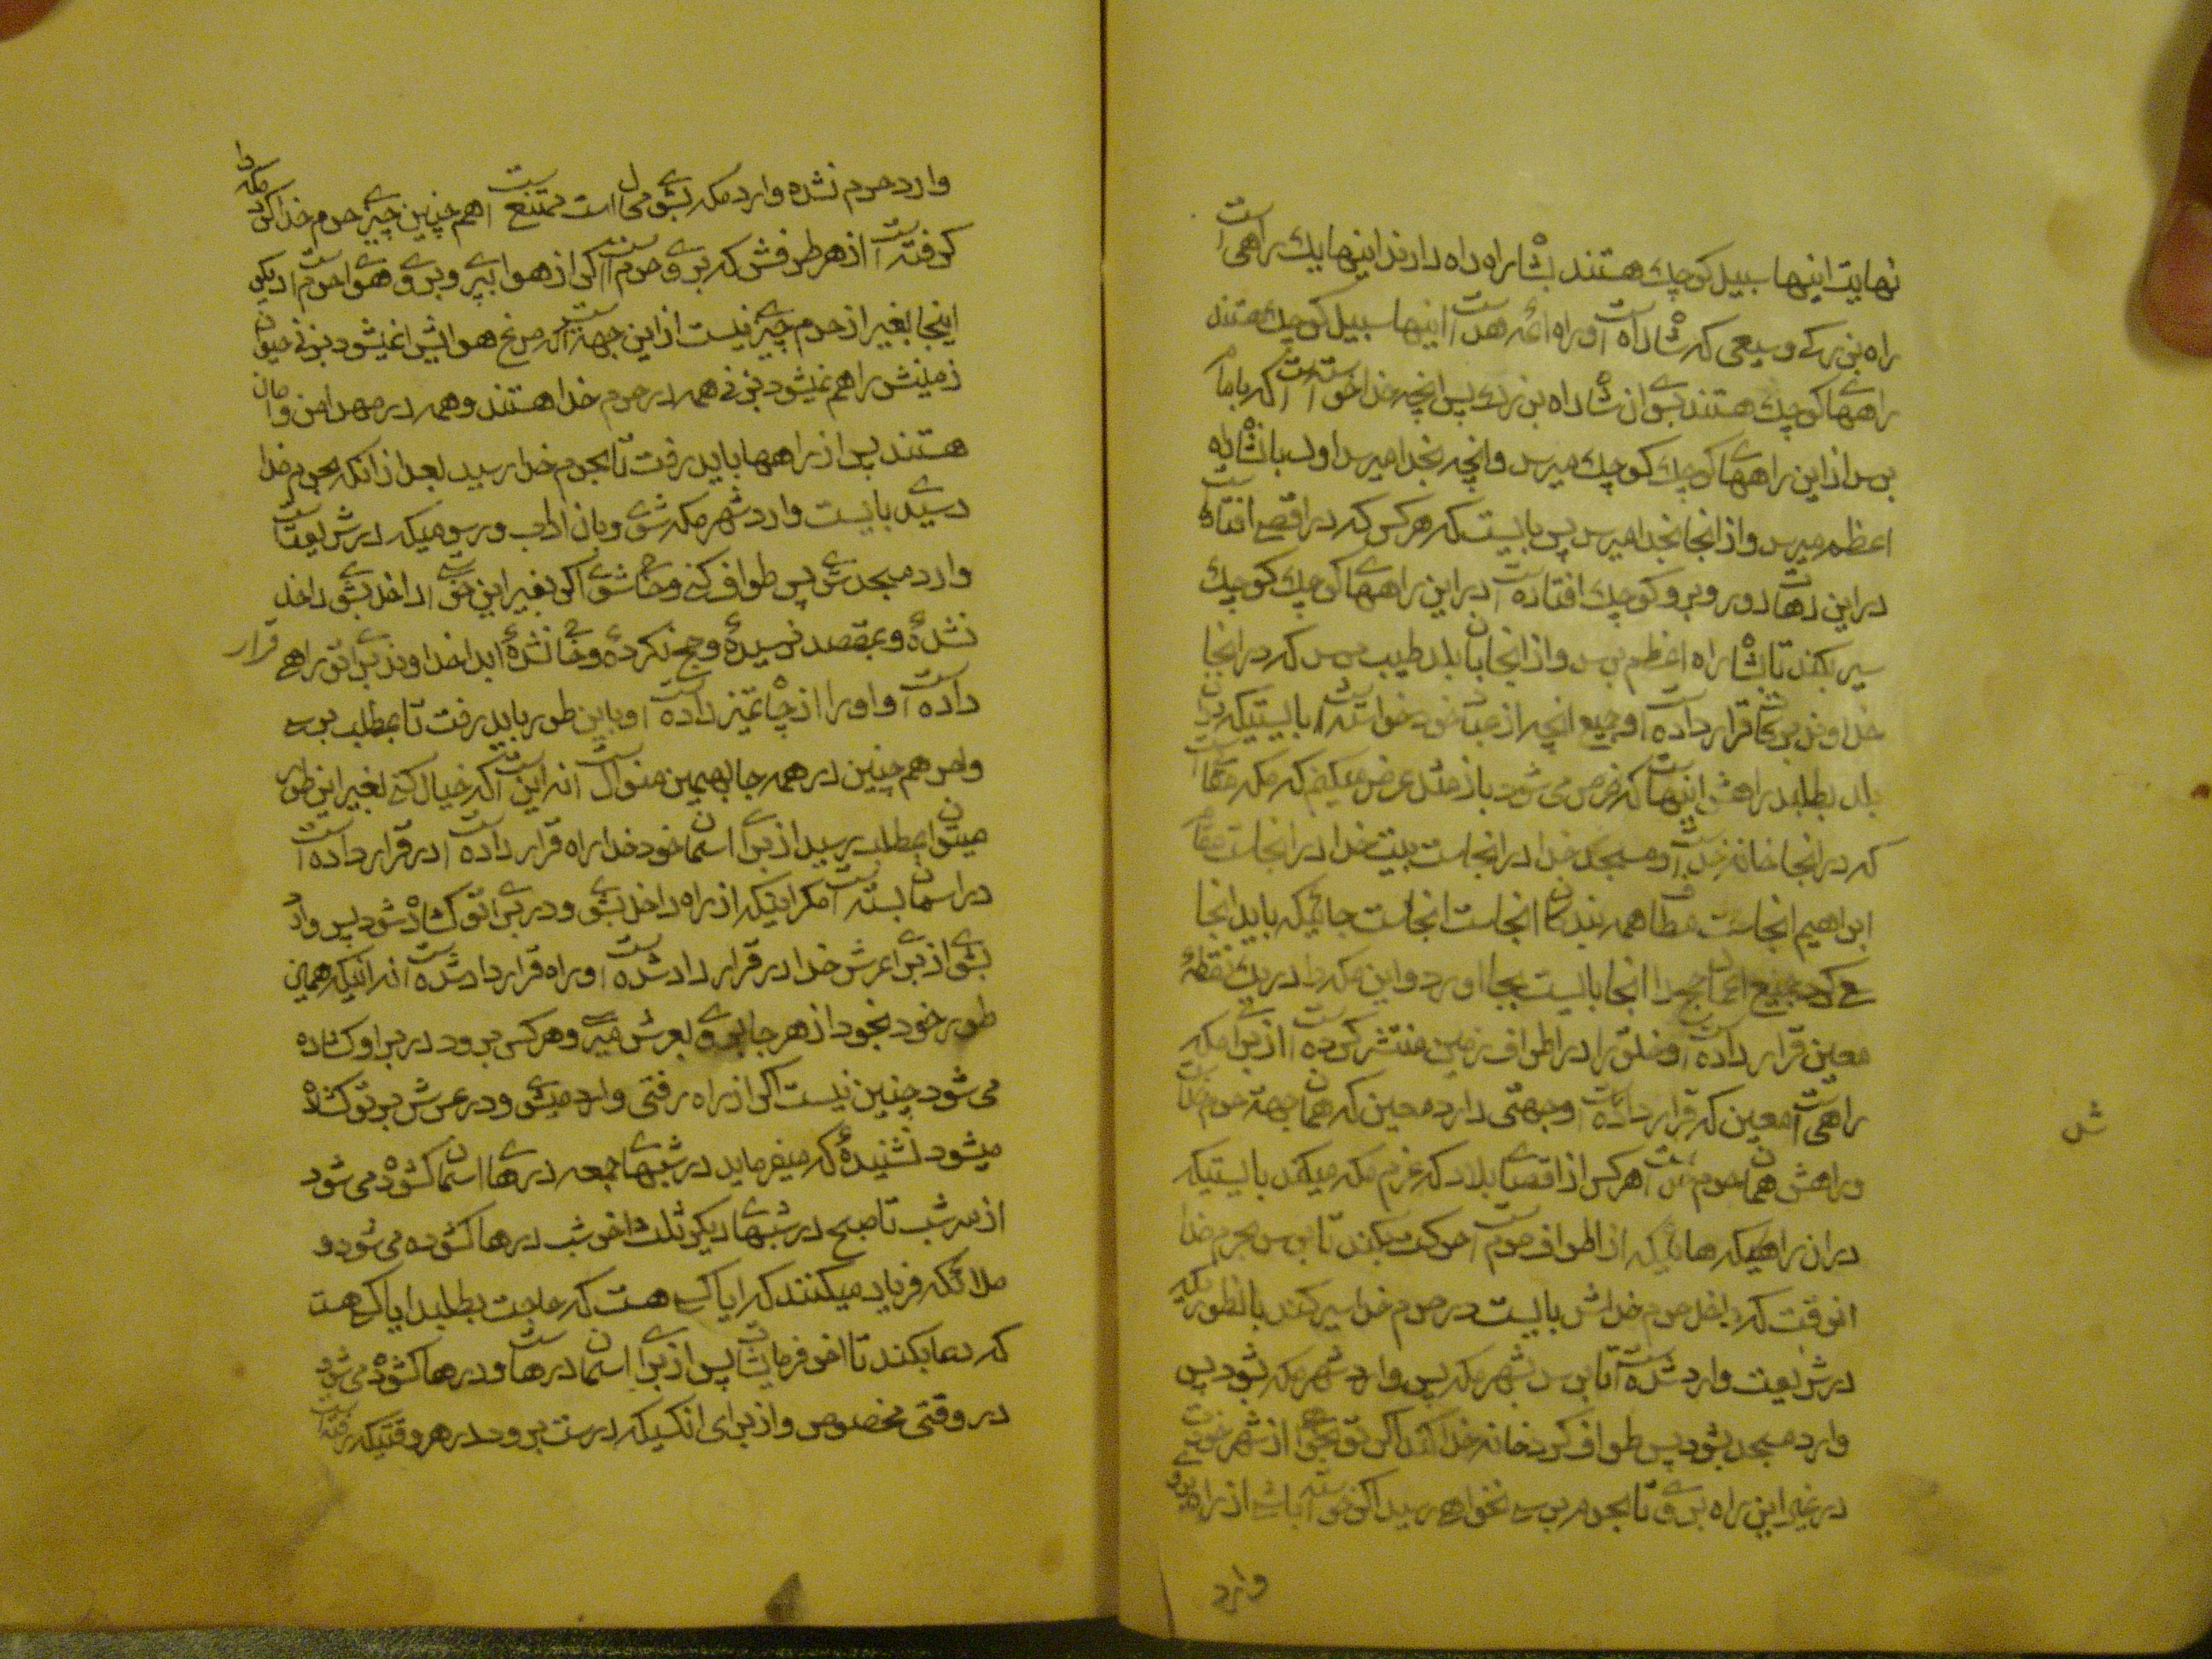 نهایت اینها سبیل کوچك هستند بشاه راه راه دارند اینها یك راهی است
راه بزرك وسیعی که شاه راه است و راه ائمه هدا است اینها سبیل کوچك هستند
راههای کوچك هستند بسوی ان شاه راه بزرك پس انچه خدا خواسته است که بامام
برسد از این راههای کوچك کوچك میرسد و انچه بخدا میرسد اول بشاه راه
اعظم میرسد و از انجا بخدا میرسد پس بایست که هر کس که در اقصی افتاده است
در این دهات دور و بر و کوچك افتاده است در این راههای کوچك کوچك
سیر بکند تا بشاه راه اعظم برسد و از انجا بان بلد طیب برسد که در انجا
خداوند قرار داده است و جمیع انچه از عباد خود خواسته است بایستیکه در ان
بلد بطلبد راهش اینست که عرض می شود باز مثل عرض میکنم که مکه مقامیست
که در انجا خانه خداست و مسجد خدا در انجاست بیت خدا در انجاست مقام
ابراهیم انجاست مطاف همه بندگان انجاست انجاست جائیکه باید انجا
حج کرد جمیع اعمال حج را انجا بایست بجا اورد و این مکه را در یك نقطه
معین قرار داده است و خلق را در اطراف زمین منتشر کرده است از برای مکه
راهی است معین که قرار داده است و جهتی دارد معین که همان جهة حرم خداست
و راهش همان حرم است هر کس از اقصای بلاد که عزم مکه میکند بایستیکه
در ان راهیکه از اطراف حرم است حرکت میکند تا برسد بحرم خدا
انوقت که داخل حرم خدا شد بایست در حرم خدا سیر کند بانطوریکه
در شریعت وارد شده است تا برسد بشهر مکه پس وارد شهر مکه بشود پس
وارد مسجد بشود پس طواف کرد خانه خدا اکر تو بخواهی از شهر خودت
در غیر این راه بروی تا بحرم برسی نخواهی رسید اکر خواسته باشی از راه بروی
شد
وارد
وارد حرم نشده وارد مکه بشوی محال است ممتنع است هم چنین چیزی حرم خدا کرد مکه را
کرفته است از هر طرفش که بروی حرم است اکر از هوا بپری و بروی هوای حرم است دیکر
اینجا بغیر از حرم چیزی نیست از این جهة است که مرغ هوایش را نمیشود بزنی حیوان
زمینش را هم نمیشود بزنی همه در حرم خدا هستند و همه در مهد امن و امان
هستند پس از راهها باید رفت تا بحرم خدا رسید بعد از انکه بحرم خدا
رسیدی بایست وارد شهر مکه شوی و بان اداب و رسومیکه در شریعت است
وارد مسجد شوی پس طواف کنی و حاجی شوی اکر بغیر این نحو داخل بشوی داخل
نشدهٔ و بمقصد نرسیدهٔ و حج نکردهٔ و حاجی نشدهٔ ابدا خداوند برای تو راهی قرار
داده است و او را از چاه تمیز داده است و باین طور باید رفت تا بمطلب برسی
و امر هم چنین در همه جا بهمین منوال است نه این است که خیال کنی بغیر این طور
میتوان بمطلب رسید از برای اسمان خود خدا راه قرار داده است در قرار داده است
در اسمان بسته است مکر اینکه از راه داخل بشوی و در برای تو کشاده شود پس وارد
بشوی از برای عرش خدا در قرار داد شده است و راه قرار داد شده است نه انیکه همین
طور خود بخود از هر جا بروی بعرش میرسی و هر کس برود در برای او کشاده
می شود چنین نیست اکر از راه رفتی وارد میشوی و در عرش بر تو کشاده
میشود نشنیدهٔ که میفرماید در شبهای جمعه درهای اسمان کشوده می شود
از سر شب تا صبح در شبهای دیکر ثلث اخر شب درها کشوده می شود و
ملائکه فریاد میکنند که ایا کسی هست که حاجت بطلبد ایا کسی هست
که دعا بکند تا اخر فرمایشات پس از برای اسمان درهاست و درها کشوده می شود
در وقتی مخصوص و از برای انکسیکه درست برود در هر وقتیکه رفته است